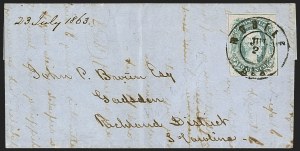 23 July 1863.
MOBILE
ALA.
John P. Brown Esq
Gadsden
Richland District
S Carolina